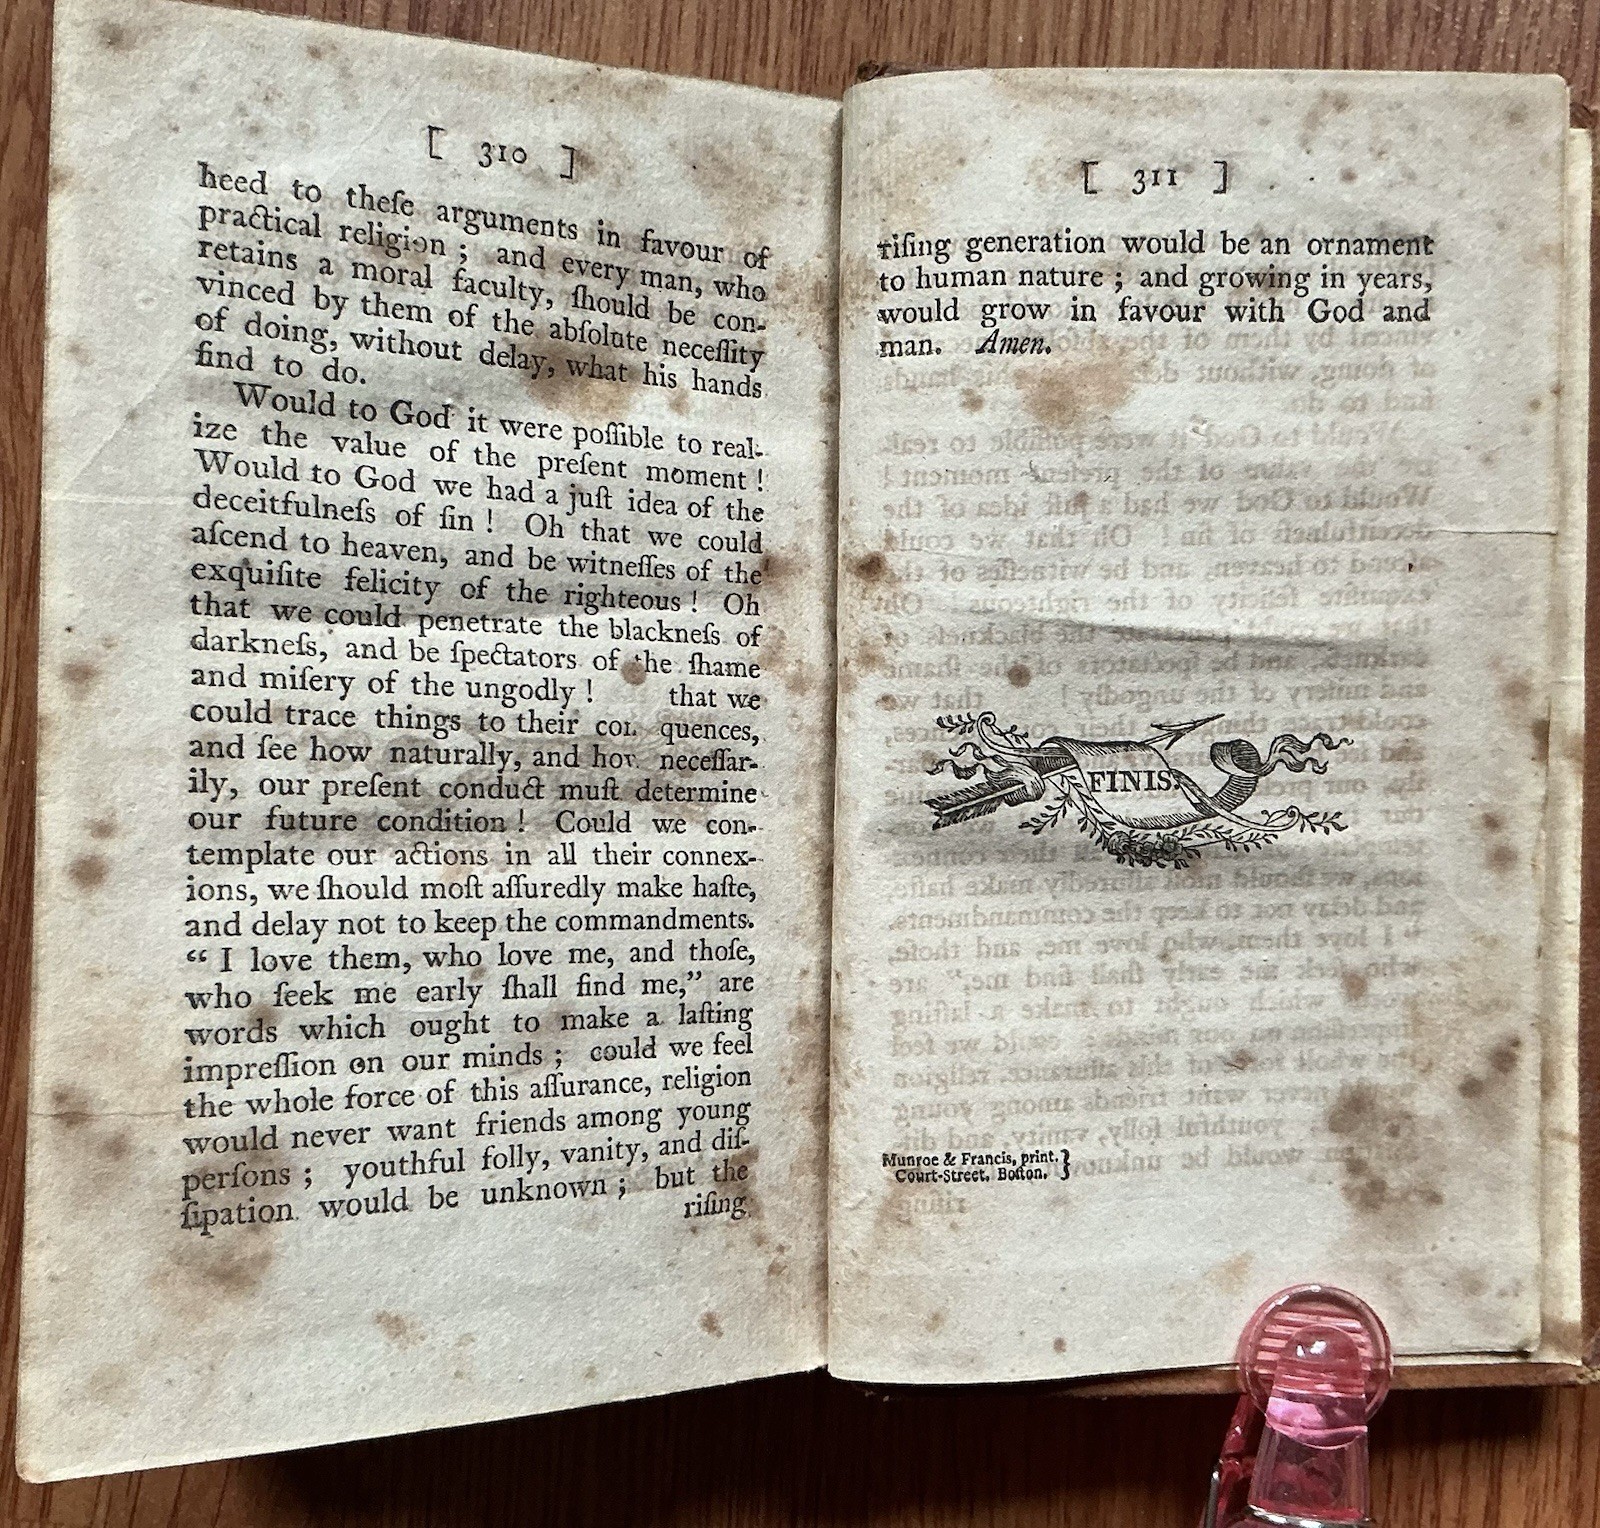 [ 310 ]
heed to theſe arguments in favour of
practical religion ; and every man, who
retains a moral faculty, ſhould be con-
vinced by them of the abſolute neceſſity
of doing, without delay, what his hands
find to do.
Would to God it were poſſible to real-
ize the value of the preſent moment !
Would to God we had a juſt idea of the
deceitfulneſs of ſin ! Oh that we could
aſcend to heaven, and be witneſſes of the
exquiſite felicity of the righteous ! Oh
that we could penetrate the blackneſs of
darkneſs, and be ſpectators of the ſhame
and miſery of the ungodly ! that we
could trace things to their quences,
and ſee how naturally, and neceſſar-
ily, our preſent conduct muſt determine
our future condition ! Could we con-
template our actions in all their connex-
ions, we ſhould moſt aſſuredly make haſte,
and delay not to keep the commandments.
“ I love them, who love me, and thoſe,
who ſeek me early ſhall find me,” are
words which ought to make a laſting
impreſſion on our minds ; could we feel
the whole force of this aſſurance, religion
would never want friends among young
perſons ; youthful folly, vanity, and diſ-
ſipation would be unknown ; but the
riſing
[ 311 ]
riſing generation would be an ornament
to human nature ; and growing in years,
would grow in favour with God and
man. Amen.
FINIS.
Munroe & Francis, print.
Court-Street, Boſton. }